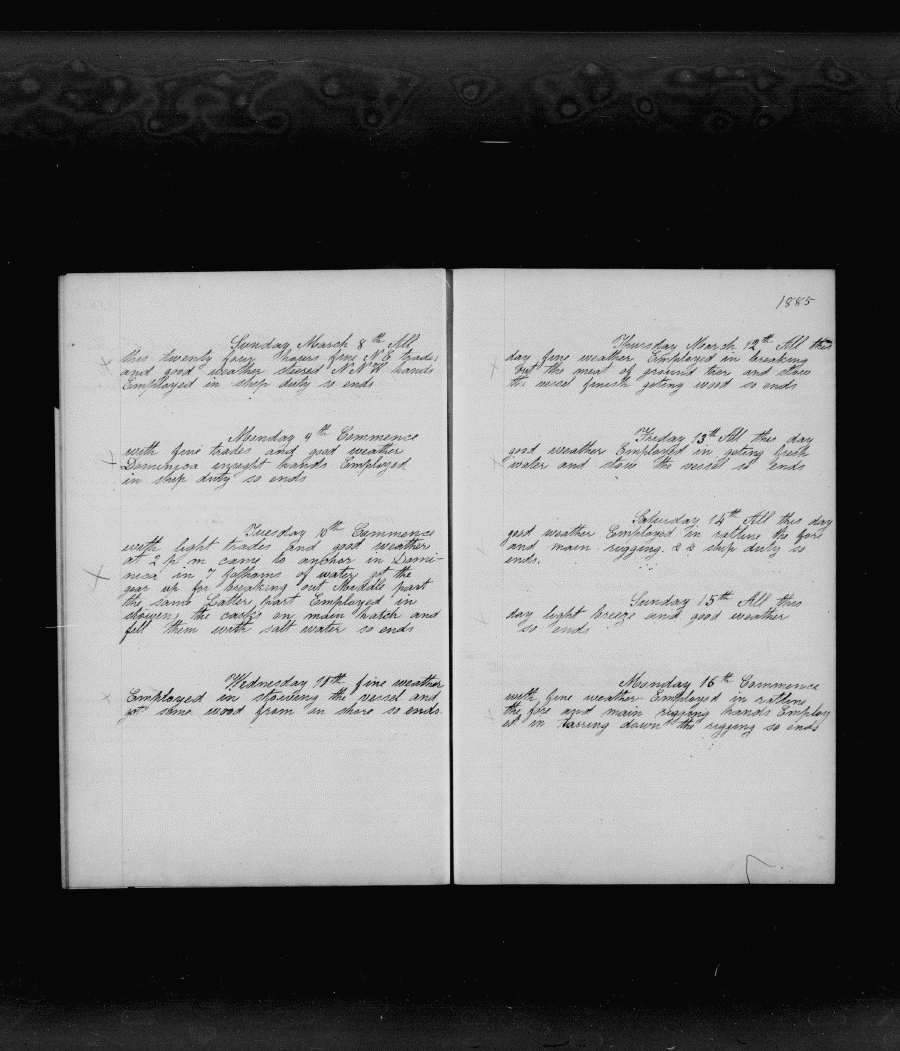 Sunday March 8th All
this twenty four hours fine N.E. trades
and good weather steered N N W hands
Employed in ship duty so ends
Monday 9th Commence
with fine trades and good weather
Dominica insight hands Employed
in ship duty so ends
Tuesday 10th Commence
with light trades and good weather
at 2 p m came to anchor in Domi-
nica in 7 fathoms of water got the
gear up for breaking out Middle part
the same Latter part Employed in
stowing the casks on main hatch and
fill them with salt water so ends
Wednesday 11th fine weather
Employed in stowing the vessel and
got some wood from on shore so ends.
1885
Thursday March 12th All this
day fine weather Employed in breaking
out the meat of ground tier and stow
the vessel finish geting wood so ends
Friday 13th All this day
good weather Employed in geting fresh
water and stow the vessel so ends
Saturday 14th All this day
good weather Employed in ratline the fore
and main rigging & & ship duty so
ends.
Sunday 15th All this
day light breeze and good weather
so ends
Monday 16th Commence
with fine weather Employed in ratline
the fore and main rigging hands Employ
ed in tarring down the rigging so ends